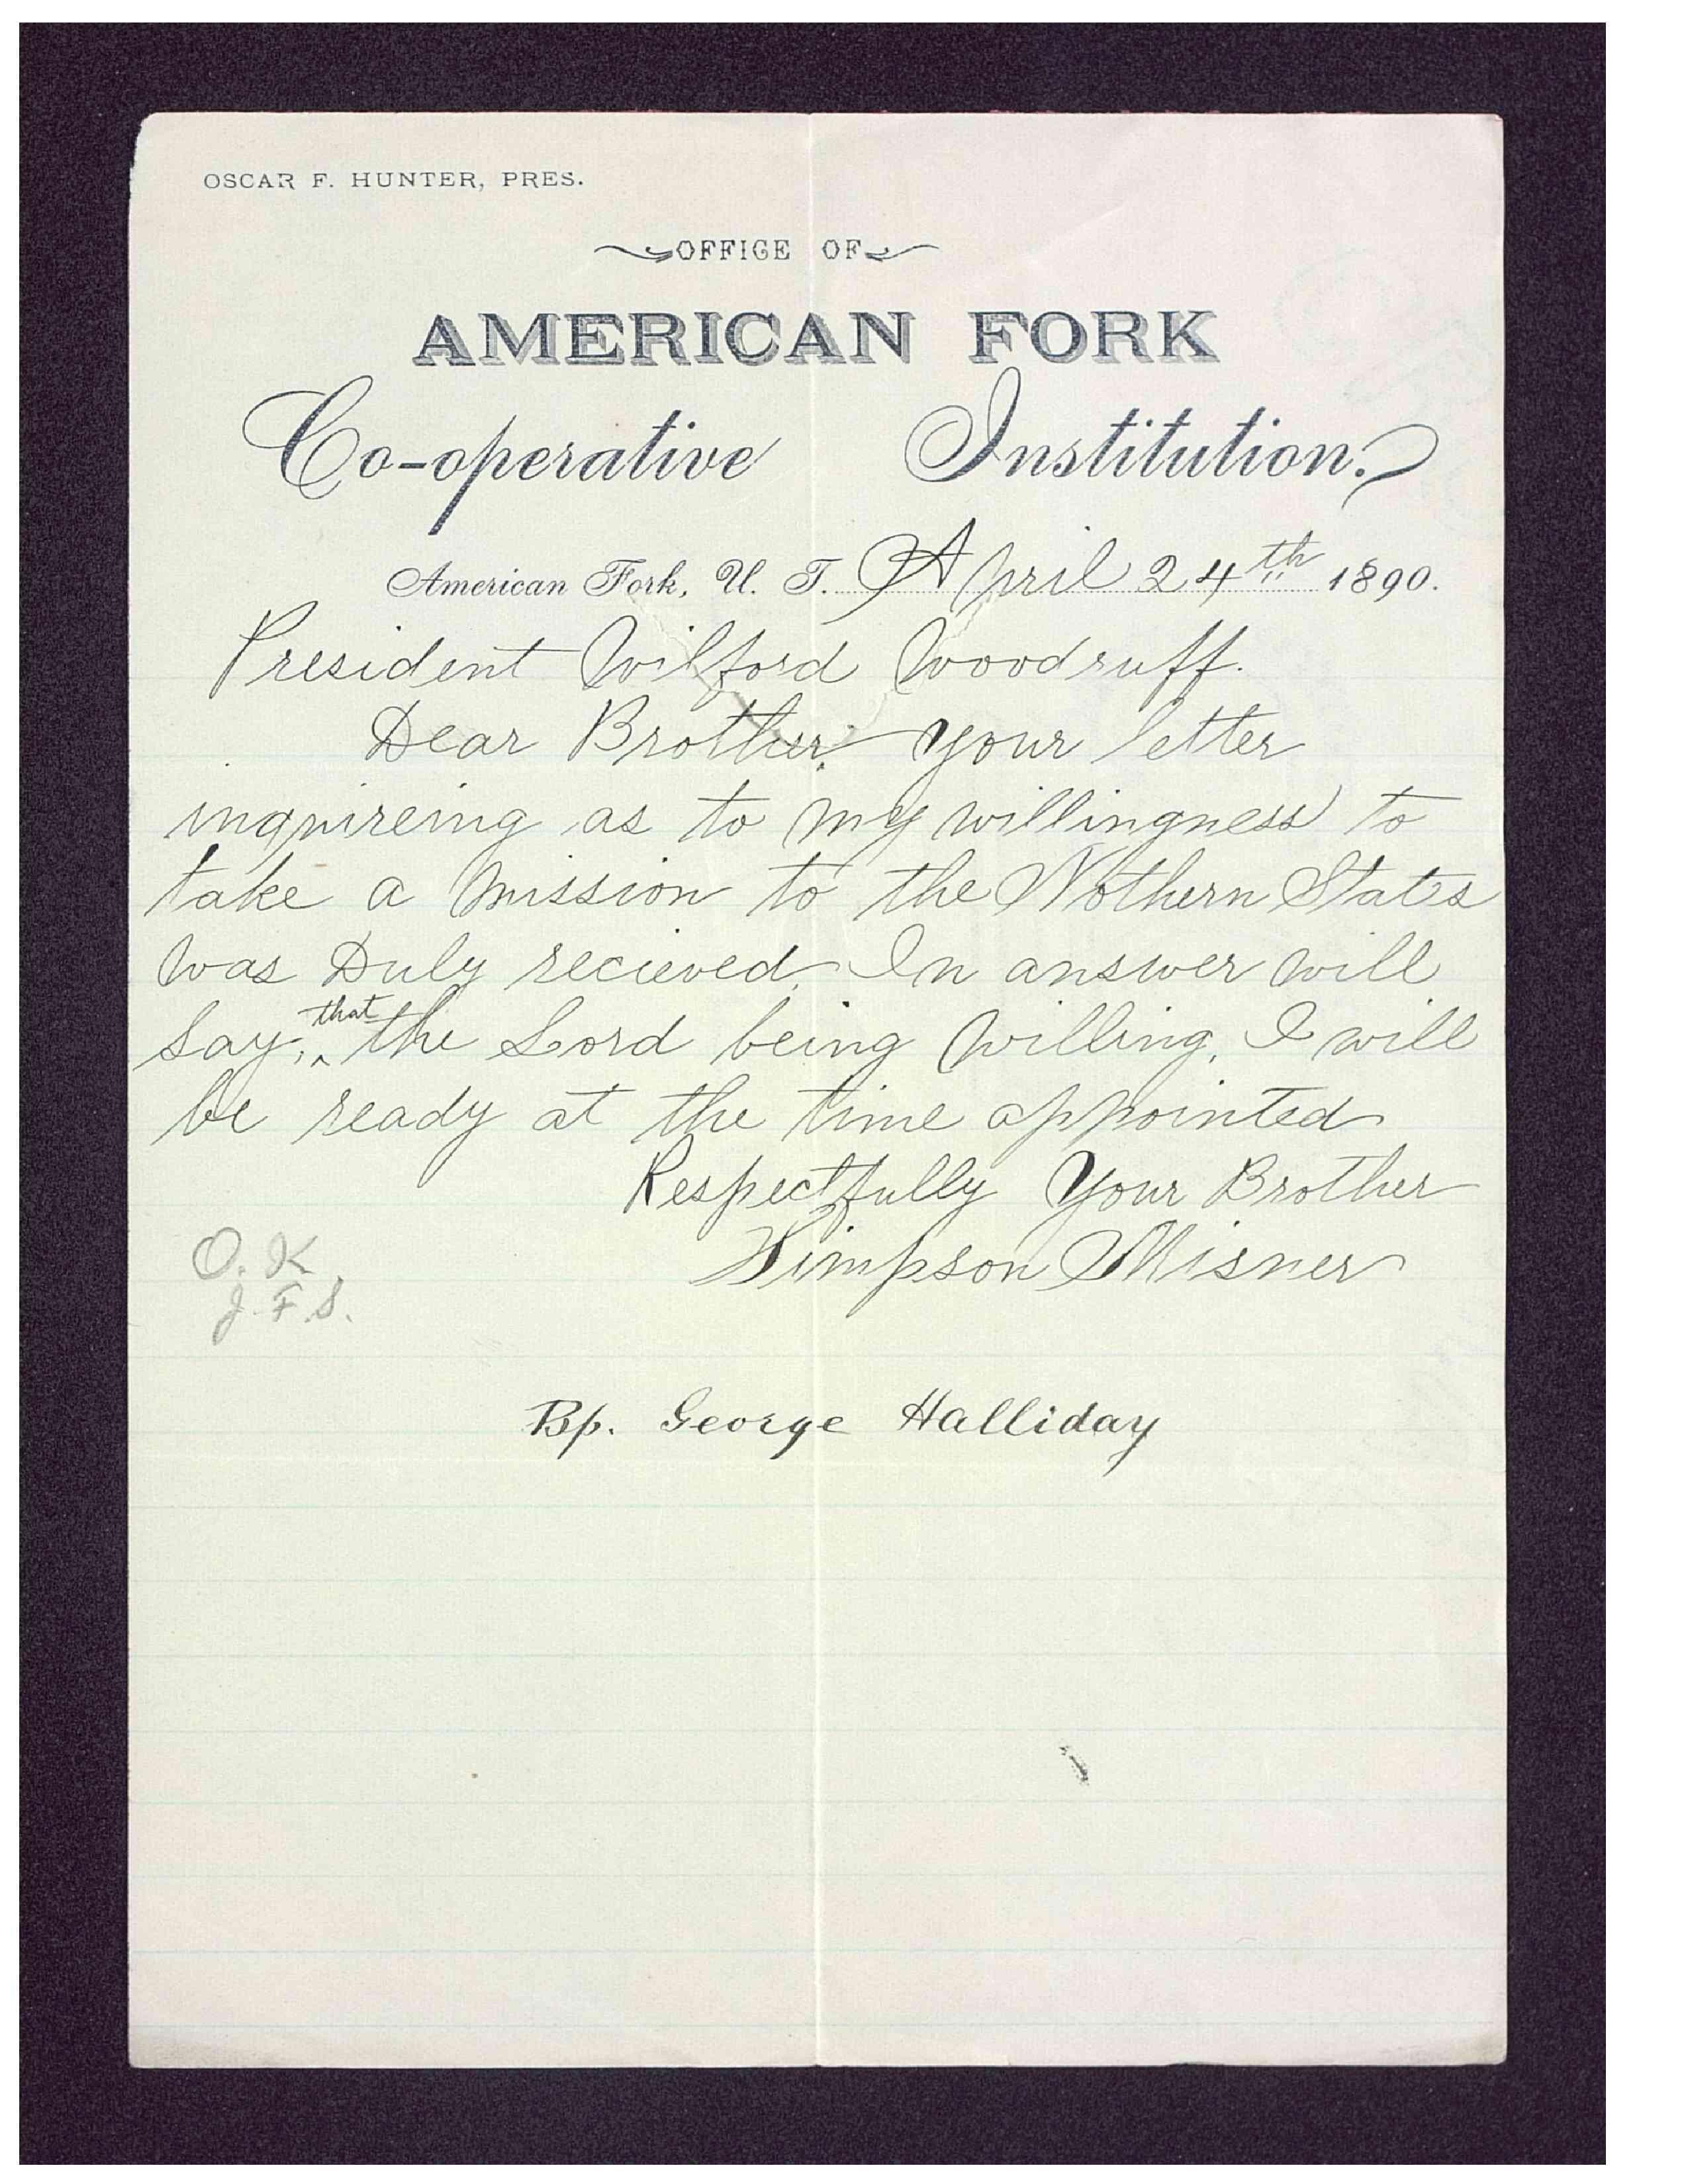 OSCAR F. HUNTER, PRES.
OFFICE OF
AMERICAN FORK
Co-operative Institution.
American Fork, U. T. April 24th 1890.
President Wilford Woodruff.
Dear Brother. your letter
inquireing as to my willingness to
take a mission to the Nothern States
was Duly recieved. In answer will
say, that the Lord being willing, I will
be ready at the time appointed
Respectfully Your Brother
Simpson Misner
O. K
J. F. S.
Bp. George Halliday